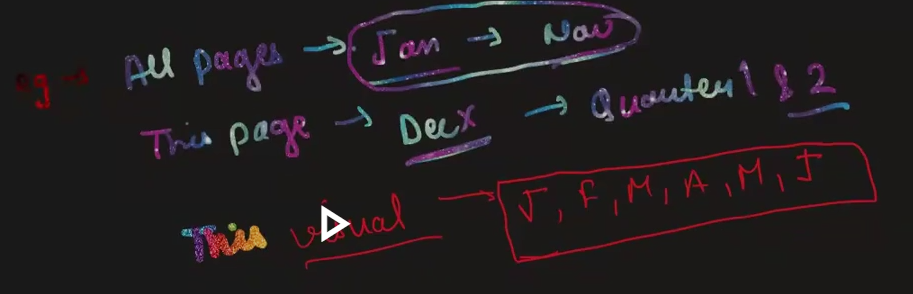 eg → All pages → Jan → Nov
This page → Dec x → Quarter 1 & 2
This visual → J, F, M, A, M, J